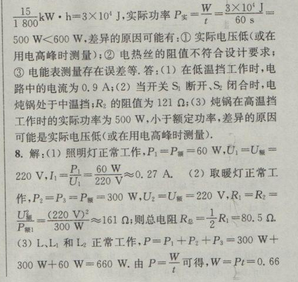 15/1 800 kW·h=3×10⁴ J,实际功率 P实=W/t=3×10⁴ J/60 s=
500 W<600 W,差异的原因可能有:① 实际电压低(或在
用电高峰时测量);② 电热丝的阻值不符合设计要求;
③ 电能表测量存在误差等.答:(1) 在低温挡工作时,电
路中的电流为 0.9 A;(2) 当开关 S₁ 断开、S₂ 闭合时,电
炖锅处于中温挡;R₁ 的阻值为 121 Ω;(3) 炖锅在高温挡
工作时的实际功率为 500 W,小于额定功率,差异的原因
可能是实际电压低(或在用电高峰时测量).
8. 解:(1) 照明灯正常工作,P₁=P额=60 W,U₁=U额=
220 V,I₁=P₁/U₁=60 W/220 V≈0.27 A. (2) 取暖灯正常工
作,P₂=P₃=P额=300 W,U₂=U额=220 V,R₁=R₂=
U额²/P额1=(220 V)²/300 W≈161 Ω;则总电阻 R总=1/2R₁=80.5 Ω.
(3) L、L₁ 和 L₂ 正常工作,P=P₁+P₂+P₃=300 W+
300 W+60 W=660 W.由 P=W/t可得,W=Pt=0.66